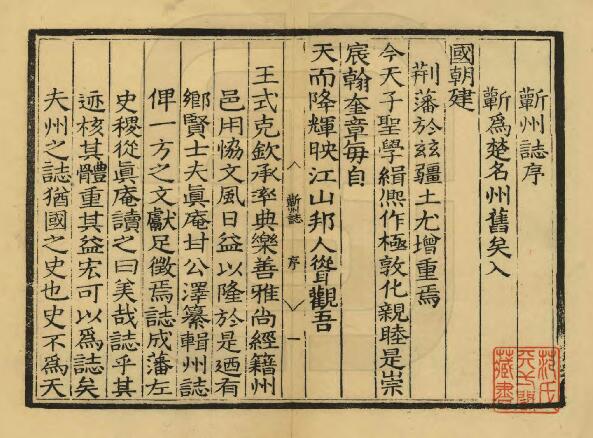 蘄州誌序
蘄爲楚名州舊矣入
國朝建
荆藩於兹疆土尤增重焉
今天子聖學緝熈作極敦化親睦是崇
宸翰奎章每自
天而降輝映江山邦人聳觀吾
蘄誌 序 一
王式克欽承率典樂善雅尚經籍州
邑用恊文風日益以隆於是廼有
鄉賢士夫眞庵甘公澤纂輯州誌
俾一方之文獻足徵焉誌成藩左
史稷從眞庵讀之曰美哉誌乎其
迹核其體重其益宏可以爲誌矣
夫州之誌猶國之史也史不爲天
范氏天一閣藏書